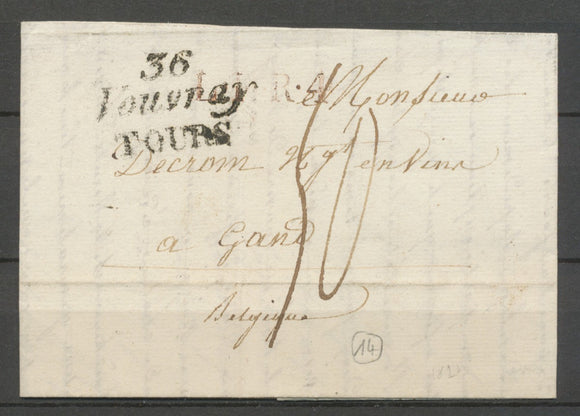 36
Vouvray
TOURS
L. .R. A
Monsieur
Decrom Ngt en vins
a Gand
Belgique
10
14